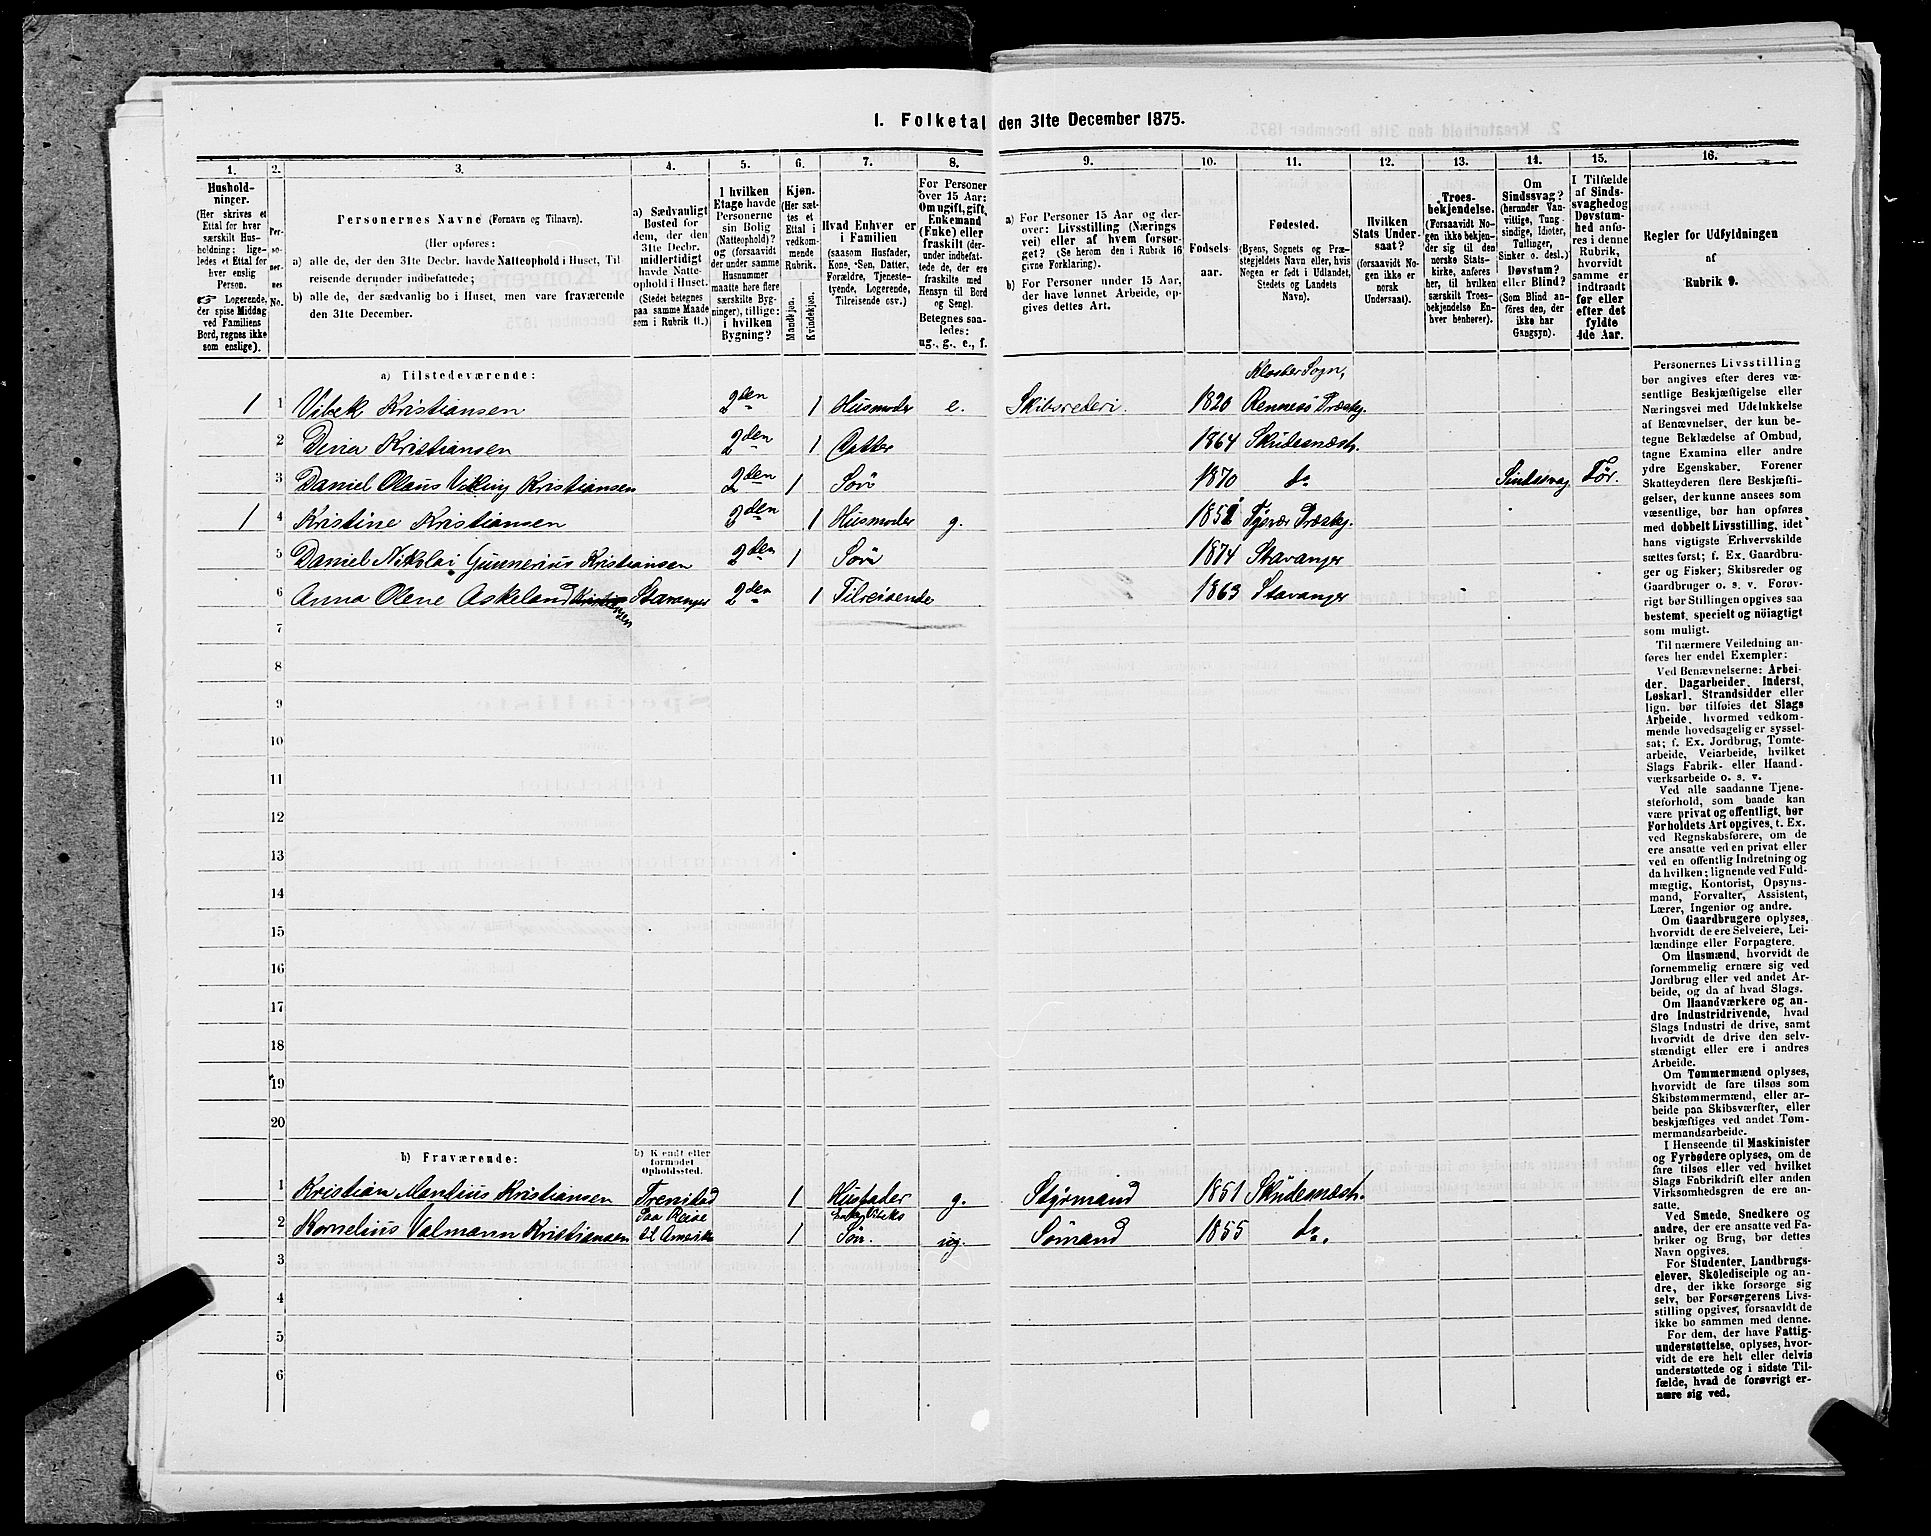 1. Folketal den 31te December 1875.
1. 2. 3. 4. 5. 6. 7. 8. 9. 10. 11. 12. 13. 14. 15. 16.
Hushold-
ninger.
(Her skrives et
Ettal for hver
særskilt Hus-
holdning; lige-
ledes et Ettal
for hver
enslig
Person.
☞ Logerende,
der spise Middag
ved Familiens
Bord, regnes ikke
som enslige).
Per-
so-
ner-
nes
No.
Personernes Navne (Fornavn og Tilnavn).
(Her opføres:
a) alle de, der den 31te Decbr. havde Natteophold i Huset, Til
reisende derunder indbefattede;
b) alle de, der sædvanlig bo i Huset, men vare fraværende
den 31te December.
a) Sædvanligt
Bosted for
dem, der den
31te Decbr.
midlertidigt
havde Natte-
ophold i Huset.
(Stedet betegnes
paa samme Maade
som i Rubrik 11.)
I hvilken
Etage havde
Personerne
sin Bolig
(Natteophold)?
(forsaavidt
der under samme
Husnummer
maatte høre flere
særskilte Byg-
ninger), tillige:
i hvilken
Bygning?
Kjøn.
(Her sæt-
tes et
Ettal i
vedkom-
mende
Rubrik.
Mandkjøn.
Kvindekjøn.
Hvad Enhver er
i Familien
(saasom Husfader,
Kone, Søn, Datter,
Forældre, Tjeneste-
tyende, Logerende,
Tilreisende osv.)
For Personer
over 15 Aar:
Om ugift, gift,
Enkemand
(Enke) eller
fraskilt (der-
under indbefat-
tede de, der ere
fraskilte med
Hensyn til Bord
og Seng).
Betegnes saa-
ledes:
ug., g., e., f.
a) For Personer 15 Aar og der-
over: Livsstilling (Nærings
vei) eller af hvem forsør-
get? (Se herom den i Rubrik 16
givne Forklaring).
b) For Personer under 15 Aar,
der have lønnet Arbeide, op-
gives dettes Art.
Fødsels-
aar.
Fødested.
(Byens, Sognets og Præ-
stegjeldets Navn eller, hvis
Nogen er født i Udlandet,
Stedets og Landets
Navn).
Hvilken
Stats Under-
saat?
(forsaavidt No-
gen ikke er
norsk
Undersaat).
Troes-
bekjendelse.
(Forsaavidt No-
gen ikke bekjen-
der sig til den
norske Stats-
kirke, anføres
her, til hvilken
særskilt Troes-
bekjendelse En-
hver henhører).
Om
Sindssvag?
(herunder Van-
vittige, Tung-
sindige, Idioter,
Tullinger,
Sinker o. desl.)
Døvstum?
eller Blind?
(Som Blind an-
føres den, der
ikke har
Gangsyn).
I Tilfælde
af Sinds-
svaghed og
Døvstum-
hed anfø-
res i denne
Rubrik,
hvorvidt
samme er
indtraadt
før eller
efter det
fyldte
4de Aar.
Regler for Udfyldningen
af
Rubrik 9.
a) Tilstedeværende:
Kloster Sogn,
1 1 Vibek Kristiansen 2den 1 Husmoder e. Skibsrederi. 1820 Rennesø Præstg.
2 Dina Kristiansen 2den 1 Datter 1864 Skudesnæsh.
3 Daniel Olaus Viking Kristiansen 2den 1 Søn 1870 do Sindssvag Før.
1 4 Kristine Kristiansen 2den 1 Husmoder g. 1852 Tysvær Præstg.
5 Daniel Nikolai Gunnerius Kristiansen 2den 1 Søn 1874 Stavanger
6 Anna Olene Askeland Kristiansen Stavanger 2den 1 Tilreisende 1863 Stavanger
7
8
9
10
11
12
13
14
15
16
17
18
19
20
b) Fraværende:
b) Kjendt eller
formodet
Opholdssted.
1 Kristian Mandius Kristiansen Trenidad 1 Husfader g. Styrmand 1851 Skudesnæsh.
2 Kornelius Valmann Kristiansen Paa Reise til Amerika 1 Enke Vibeks Søn. ug. Sømand 1855 do.
3
4
5
6
Personernes Livsstilling
bør angives efter deres væ-
sentlige Beskjæftigelse eller
Næringsvei med Udelukkelse
af Benævnelser, der kun be-
tegne Beklædelse af Ombud,
tagne Examina eller andre
ydre Egenskaber. Forener
Skatteyderen flere Beskjæfti-
gelser, der kunne ansees som
væsentlige, bør han opføres
med dobbelt Livsstilling, idet
hans vigtigste Erhvervskilde
sættes først; f. Ex. Gaardbru-
ger og Fisker; Skibsreder og
Gaardbruger o. s. v. Forøv-
rigt bør Stillingen opgives saa
bestemt, specielt og nöiagtigt
som muligt.
Til nærmere Veiledning an-
føres her endel Exempler:
Ved Benævnelserne: Arbei-
der, Dagarbeider, Inderst,
Løskarl, Strandsidder eller
lign. bør tilføies det Slags
Arbeide, hvormed vedkom-
mende hovedsagelig er syssel-
sat; f. Ex. Jordbrug, Tomte-
arbeide, Veiarbeide, hvilket
Slags Fabrik- eller Haand-
værksarbeide o. s. v.
Ved alle saadanne Tjene-
steforhold, som baade kan
være privat og offentligt, bør
Forholdets Art opgives, t. Ex.
ved Regnskabsførere, om de
ere ansatte ved en privat eller
ved en offentlig Indretning og
da hvilken; lignende ved Fuld-
mægtig, Kontorist, Opsyns-
mand, Forvalter, Assistent,
Lærer, Ingeniør og andre.
Om Gaardbrugere oplyses,
hvorvidt de ere Selveiere, Lei-
lændinge eller Forpagtere.
Om Husmænd, hvorvidt de
fornemmelig ernære sig ved
Jordbrug eller ved andet Ar-
beide, og da af hvad Slags.
Om Haandværkere og an-
dre Industridrivende, hvad
Slags Industri de drive, samt
hvorvidt de drive den selv-
stændigt eller ere i andres
Arbeide.
Om Tømmermænd oplyses,
hvorvidt de fare tilsøs som
Skibstømmermænd, eller ar-
beide paa Skibsværfter, eller
beskjæftiges ved andet Tøm-
mermandsarbeide.
I Henseende til Maskinister
og Fyrbødere oplyses, om de
fare tilsøs eller ved hvilket
Slags Fabrikdrift eller anden
Virksomhedsgren de ere an-
satte.
Ved Smede, Snedkere og
andre, der ere ansatte ved Fa-
briker og Brug, bør dettes
Navn opgives.
For Studenter, Landbrugs-
elever, Skoledisciple og an-
dre, der ikke forsørge sig
selv, bør Forsørgerens Livs-
stilling opgives, forsaavidt de
ikke bo sammen med denne.
For dem, der have Fattig-
understøttelse, oplyses, hvor-
vidt de ere helt eller delvis
understøttede og i sidste Til-
fælde, hvad de forøvrigt er-
nære sig ved.